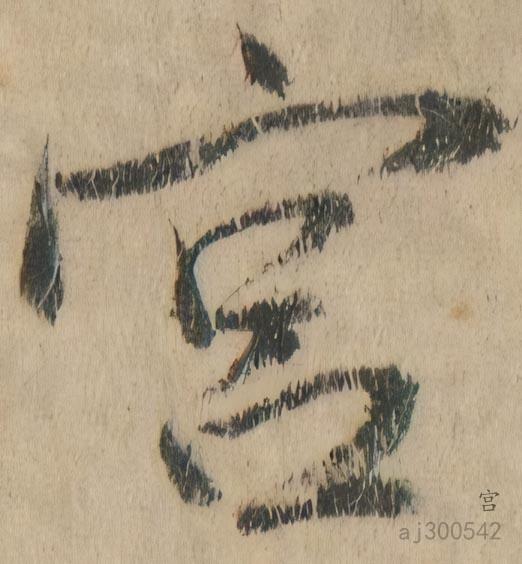 宫
宫
aj300542